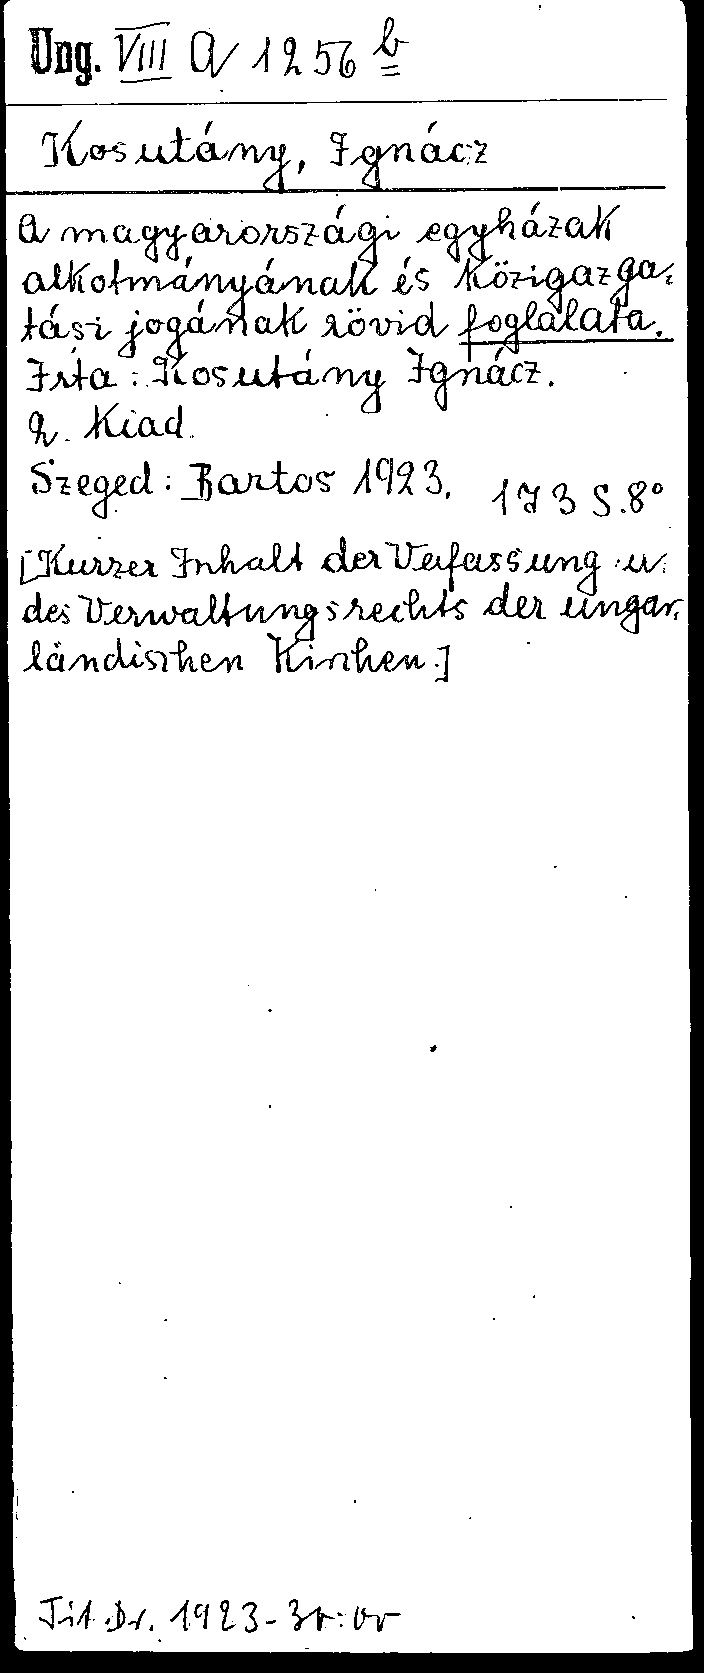 Ung. VIII A 1256 b
Kosutány, Ignácz
A magyarországi egyházak
alkotmányának és közigazga-
tási jogának rövid foglalata.
Irta: Kosutány Ignácz.
2. Kiad.
Szeged: Bartos 1923. 173 S. 8°
[Kurzer Inhalt der Verfassung u.
des Verwaltungsrechts der ungar-
ländischen Kirchen.]
Tit. Dr. 1923-